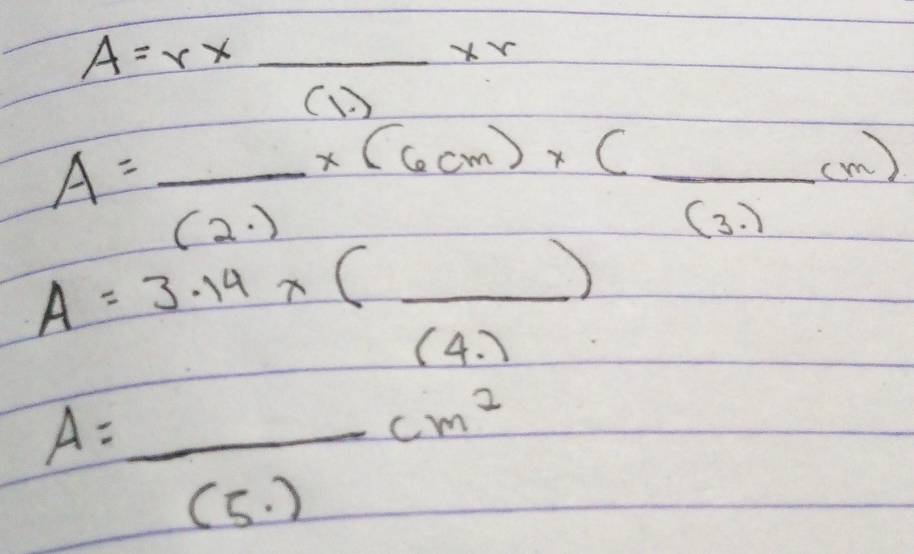 A = r x ______ x r
(1.)
A = ______ x (6 cm) x ( ______ cm)
(2.) (3.)
A = 3.14 x ( ______ )
(4.)
A = ______ cm²
(5.)